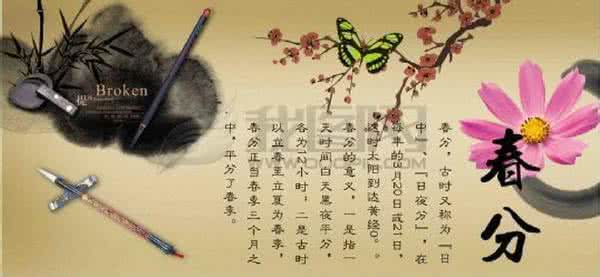 春分
春分，古时又称为『日
中』、『日夜分』，在
每年的3月20日或21日，
这时太阳到达黄经0。
春分的意义，一是指一
天时间白天黑夜平分，
各为12小时；二是古时
以立春至立夏为春季，
春分正当春季三个月之
中，平分了春季。
Broken